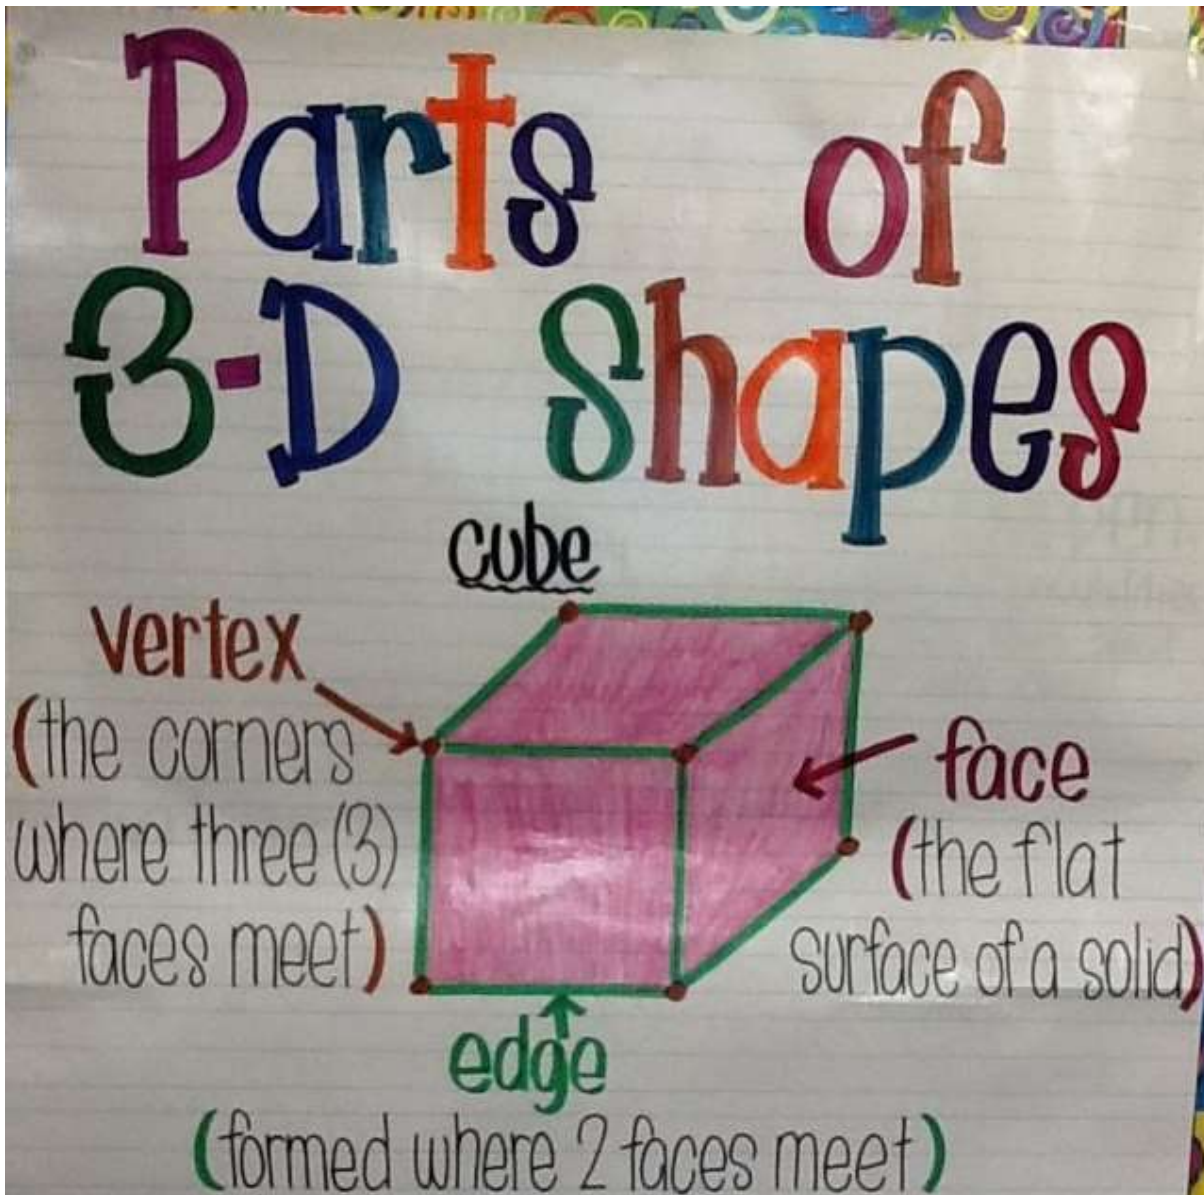 Parts of
3-D Shapes
cube
vertex
(the corners
where three (3)
faces meet)
face
(the flat
surface of a solid)
edge
(formed where 2 faces meet)